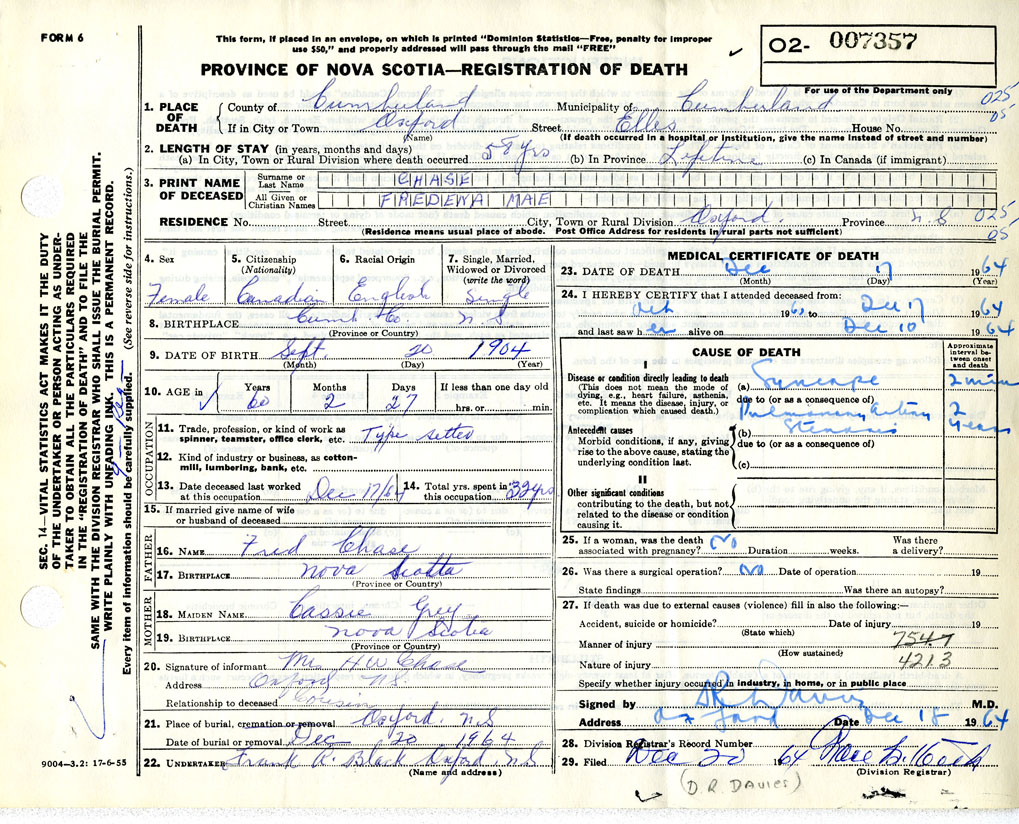 FORM 6
This form, if placed in an envelope, on which is printed "Dominion Statistics—Free, penalty for improper
use $50," and properly addressed will pass through the mail "FREE"
O2- 007357
For use of the Department only
PROVINCE OF NOVA SCOTIA—REGISTRATION OF DEATH
1. PLACE OF DEATH
County of Cumberland Municipality of Cumberland 025
If in City or Town Oxford Street Ellis House No. 05
(Name) (If death occurred in a hospital or institution, give the name instead of street and number)
2. LENGTH OF STAY (in years, months and days)
(a) In City, Town or Rural Division where death occurred 58 yrs (b) In Province Lifetime (c) In Canada (if immigrant)
3. PRINT NAME OF DECEASED
Surname or Last Name CHASE
All Given or Christian Names FREDENA MAE
RESIDENCE No. Street City, Town or Rural Division Oxford. Province N.S 025
(Residence means usual place of abode. Post Office Address for residents in rural parts not sufficient) 05
4. Sex Female
5. Citizenship (Nationality) Canadian
6. Racial Origin English
7. Single, Married, Widowed or Divorced (write the word) Single
8. BIRTHPLACE Cumb. Co. N S
(Province or Country)
9. DATE OF BIRTH Sept. 20 1904
(Month) (Day) (Year)
10. AGE in Years 60 Months 2 Days 27 If less than one day old hrs. or min.
OCCUPATION
11. Trade, profession, or kind of work as spinner, teamster, office clerk, etc. Type setter
12. Kind of industry or business, as cotton-mill, lumbering, bank, etc.
13. Date deceased last worked at this occupation Dec 17/64 14. Total yrs. spent in this occupation 32 yrs
15. If married give name of wife or husband of deceased
FATHER
16. NAME Fred Chase
17. BIRTHPLACE Nova Scotia
(Province or Country)
MOTHER
18. MAIDEN NAME Cassie Grey
19. BIRTHPLACE Nova Scotia
(Province or Country)
20. Signature of informant Mrs H W Chase
Address Oxford N.S.
Relationship to deceased Cousin
21. Place of burial, cremation or removal Oxford, N.S
Date of burial or removal Dec 20 1964
22. UNDERTAKER Frank A. Black Oxford, N.S
(Name and address)
MEDICAL CERTIFICATE OF DEATH
23. DATE OF DEATH Dec 17 1964
(Month) (Day) (Year)
24. I HEREBY CERTIFY that I attended deceased from:
1963 to Dec 17 1964
and last saw her alive on Dec 10 1964
CAUSE OF DEATH
Approximate interval between onset and death
I
Disease or condition directly leading to death
(This does not mean the mode of dying, e.g., heart failure, asthenia, etc. It means the disease, injury, or complication which caused death.)
(a) Syncope 2 min
due to (or as a consequence of)
Pulmonary artery 2
Antecedent causes
Morbid conditions, if any, giving rise to the above cause, stating the underlying condition last.
(b) Stenosis years
due to (or as a consequence of)
(c)
II
Other significant conditions contributing to the death, but not related to the disease or condition causing it.
25. If a woman, was the death associated with pregnancy? No Duration weeks. Was there a delivery?
26. Was there a surgical operation? No Date of operation 19
State findings Was there an autopsy?
27. If death was due to external causes (violence) fill in also the following:—
Accident, suicide or homicide? Date of injury 19
(State which)
Manner of injury 754.7
(How sustained)
Nature of injury 4213
Specify whether injury occurred in industry, in home, or in public place
Signed by D R Davies M.D.
Address Oxford Date Dec 18 1964
28. Division Registrar's Record Number
29. Filed Dec 20 1964
(Division Registrar)
(D.R. DAVIES)
9004—3.2: 17-6-55
SEC. 14—VITAL STATISTICS ACT MAKES IT THE DUTY
OF THE UNDERTAKER OR PERSON ACTING AS UNDER-
TAKER TO OBTAIN ALL THE PARTICULARS REQUIRED
IN THE "REGISTRATION OF DEATH" AND TO FILE THE
SAME WITH THE DIVISION REGISTRAR WHO SHALL ISSUE THE BURIAL PERMIT.
WRITE PLAINLY WITH UNFADING INK. THIS IS A PERMANENT RECORD.
Every item of information should be carefully supplied. (See reverse side for instructions.)